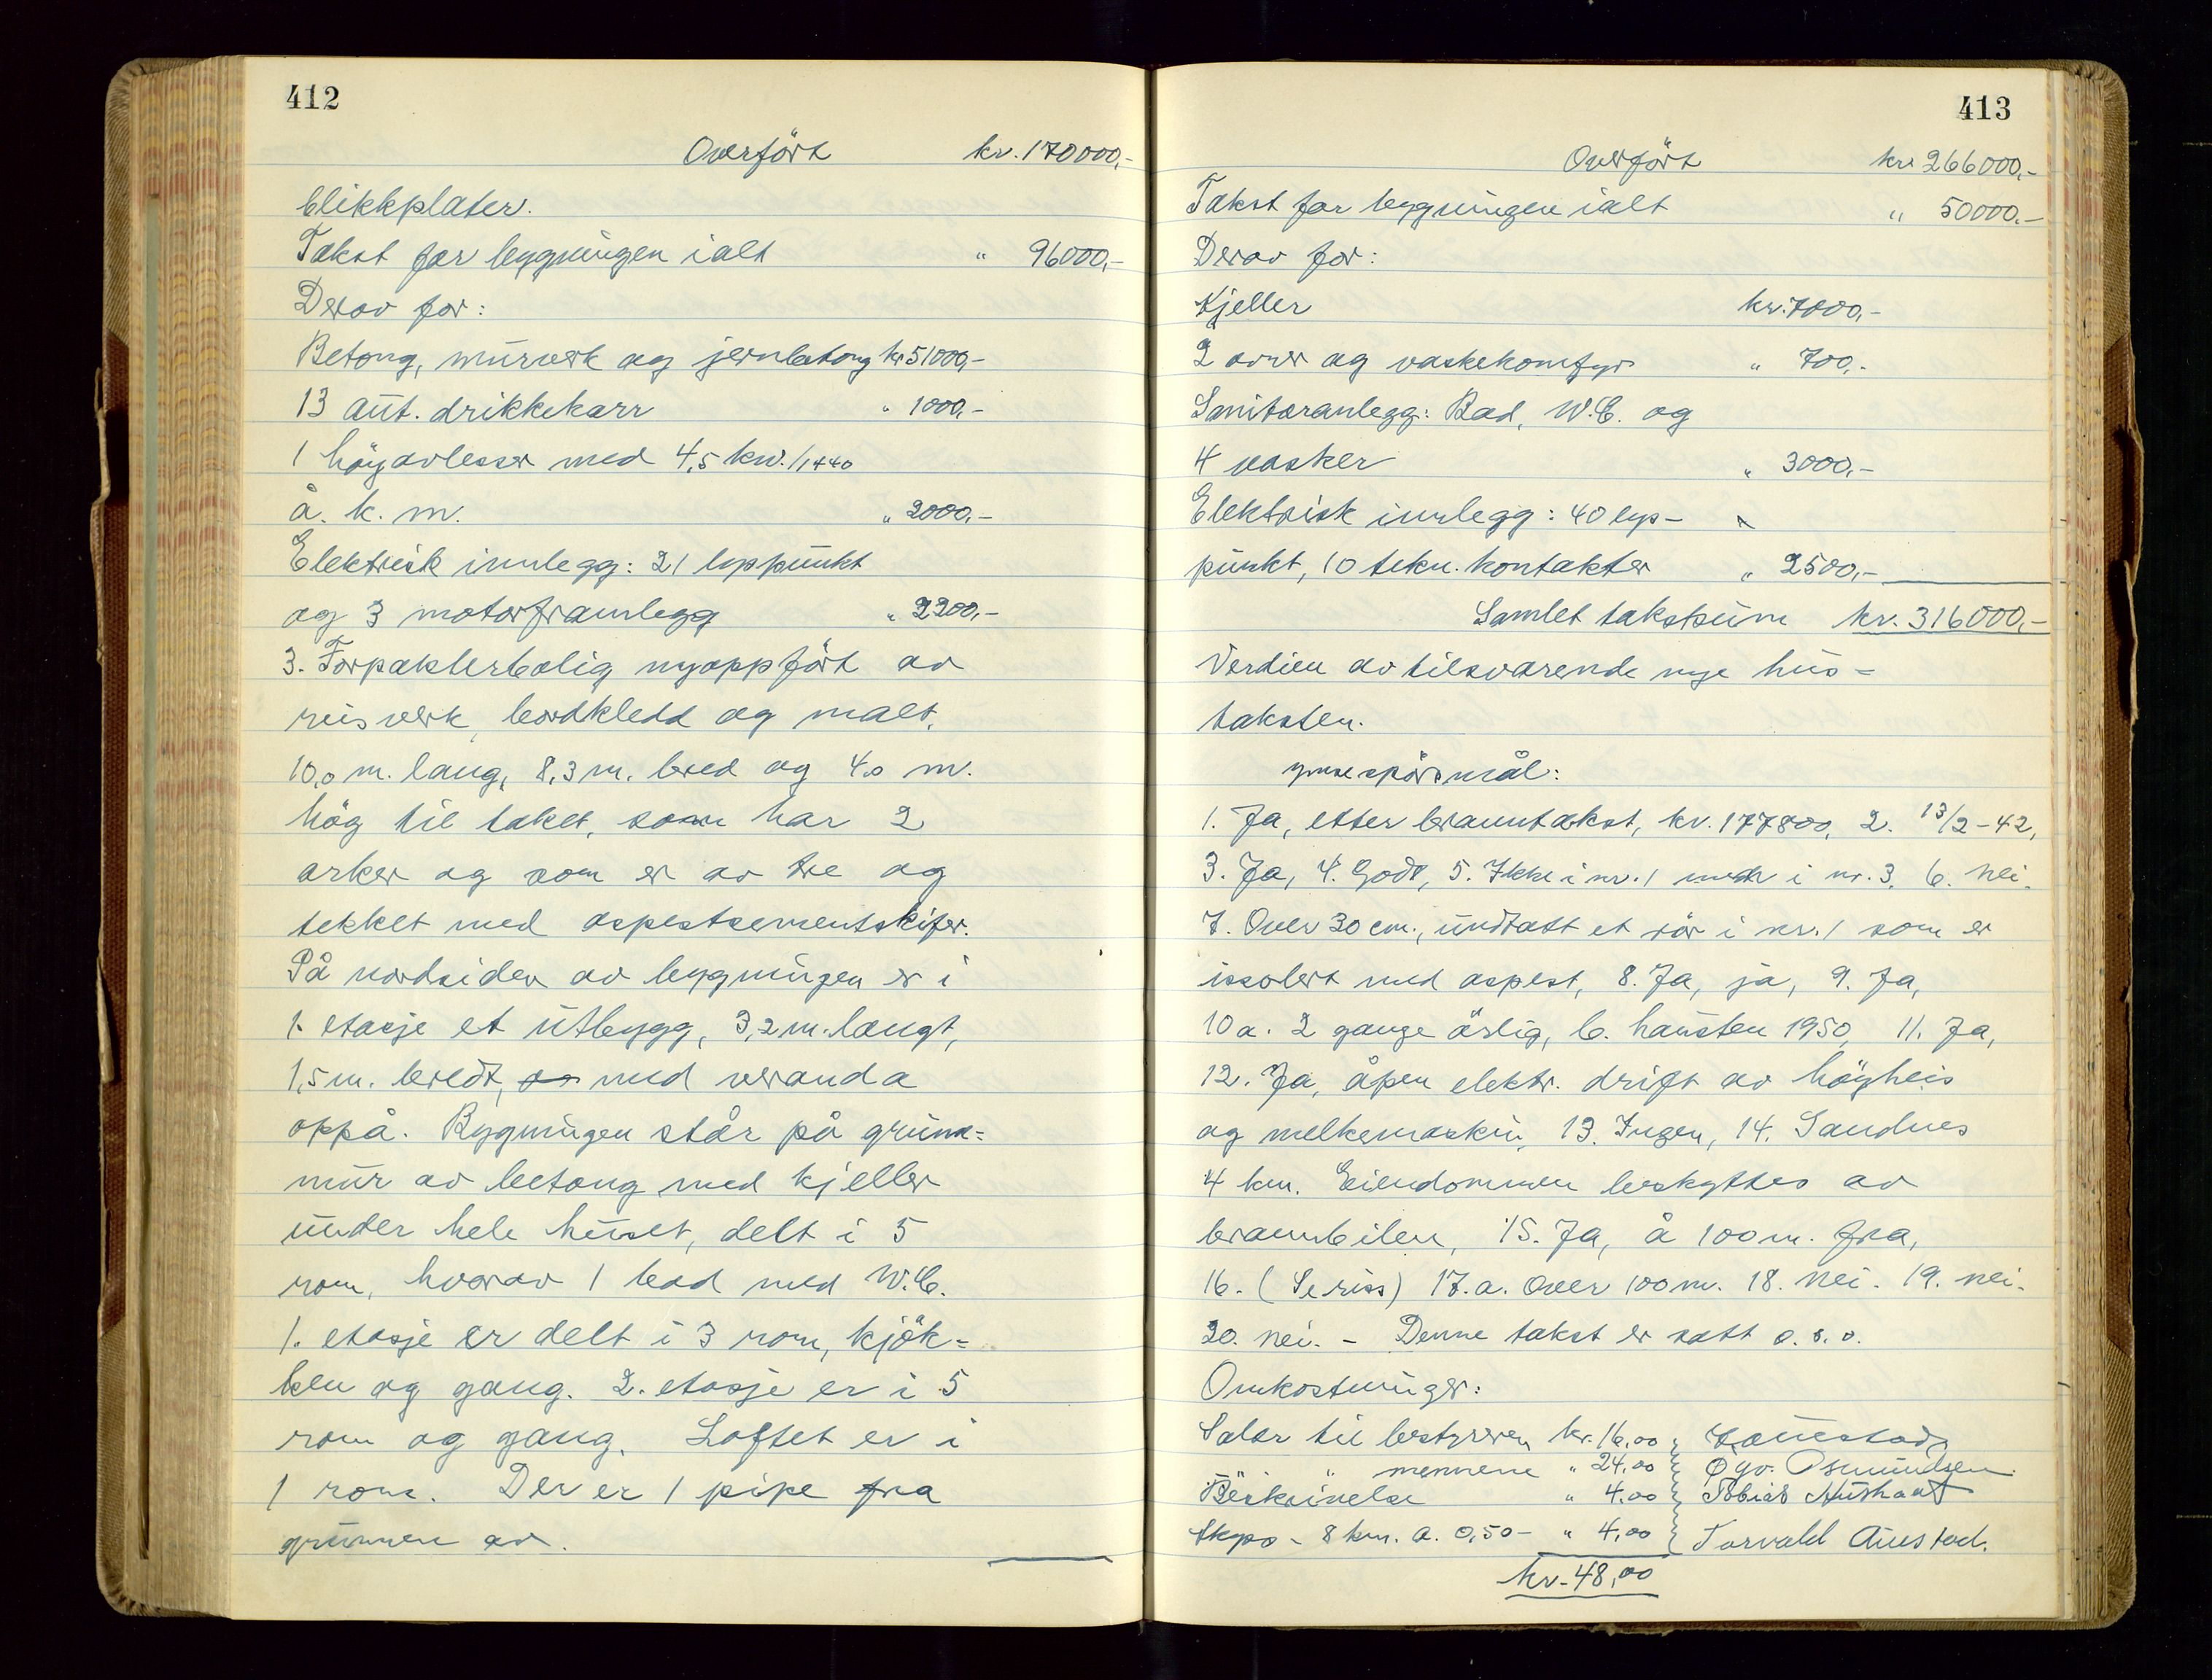 412
Overfört kr. 170000,-
blikkplater.
Takst for bygningen ialt " 96000,-
Derav for:
Betong, murverk og jernbetong kr 51000,-
13 aut. drikkekarr " 1000,-
1 höyavlesser med 4,5 kw. / 1440
å. k. m. " 2000,-
Elektrisk innlegg: 21 lyspunkt
og 3 motorframlegg " 2200,-
3. Forpakterbolig nyoppfört av
reisverk, bordkledd og malt,
10,0 m. lang, 8,3 m. bred og 4,0 m.
hög til taket, som har 2
arker og som er av tre og
tekket med aspestsementskifer.
På nordsiden av bygningen er i
1. etasje et utbygg, 3,2 m. langt,
1,5 m. bredt, med veranda
oppå. Bygningen står på grunn=
mur av betong med kjeller
under hele huset, delt i 5
rom, hvorav 1 bad med W.C.
1. etasje er delt i 3 rom, kjök=
ken og gang. 2. etasje er i 5
rom og gang. Loftet er i
1 rom. Der er 1 pipe fra
grunnen av.
413
Overfört kr. 266000,-
Takst for bygningen ialt " 50000,-
Derav for:
Kjeller kr. 7000,-
2 ovner og vaskekomfyr " 700,-
Sanitæranlegg: Bad, W.C. og
4 vasker " 3000,-
Elektrisk innlegg: 40 lys-
punkt, 10 tekn. kontakter " 2500,-
Samlet takstsum kr. 316000,-
Verdien av tilsvarende nye hus =
taksten.
Ymse spörsmål:
1. Ja, etter branntakst, kr. 177800, 2. 13/2-42,
3. Ja, 4. Godt, 5. Ikke i nr. 1 men i nr. 3, 6. Nei.
7. Over 30 cm., undtatt et rör i nr. 1 som er
issolert med aspest, 8. Ja, ja, 9. Ja,
10 a. 2 gange årlig, b. hausten 1950, 11. Ja,
12. Ja, åpen elektr. drift av höyheis
og melkemaskin, 13. Ingen, 14. Sandnes
4 km. Eiendommen beskyttes av
brannbilen, 15. Ja, å 100 m. fra,
16. (Se riss) 17. a. Over 100 m. 18. Nei. 19. Nei.
20. Nei. - Denne takst er satt o. s. v.
Omkostninger:
Salær til bestyreren kr. 16,00
" mennene " 24,00 Ogv. Osmundsen.
Beskrivelse " 4,00 Tobias
Skyss - 8 km. a. 0,50 - " 4,00 Torvald Austad.
kr. 48,00